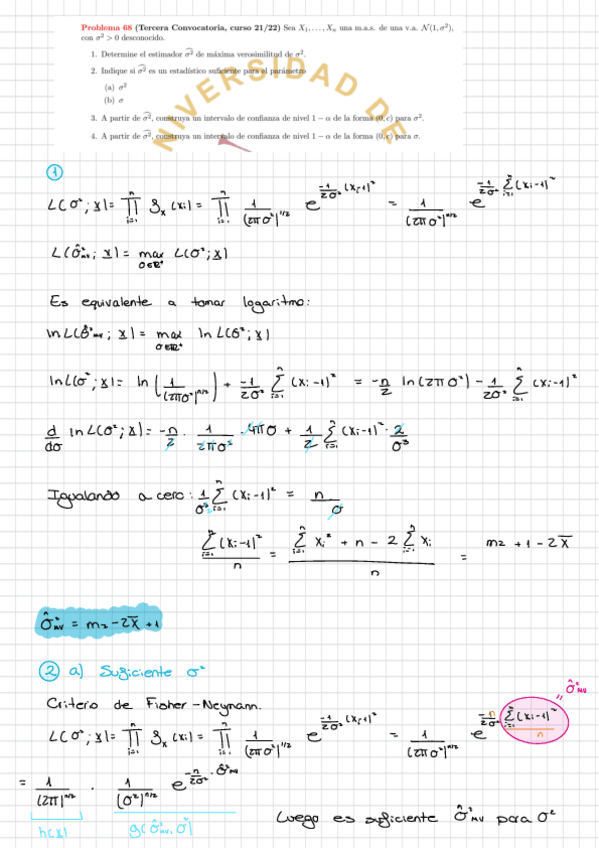 Problema 68 (Tercera Convocatoria, curso 21/22) Sea X₁, …, Xₙ una m.a.s. de una v.a. N(1, σ²),
con σ² > 0 desconocido.
1. Determine el estimador σ̂² de máxima verosimilitud de σ².
2. Indique si σ̂² es un estadístico suficiente para el parámetro
(a) σ²
(b) σ
3. A partir de σ̂², construya un intervalo de confianza de nivel 1 − α de la forma (0, c) para σ².
4. A partir de σ̂², construya un intervalo de confianza de nivel 1 − α de la forma (0, c) para σ.
NIVERSIDAD DE
①
L(σ²; x) = ∏ᵢ₌₁ⁿ fₓ(xᵢ) = ∏ᵢ₌₁ⁿ 1/(2πσ²)^(1/2) e^(-1/2σ² (xᵢ-1)²) = 1/(2πσ²)^(n/2) e^(-1/2σ² Σᵢ₌₁ⁿ(xᵢ-1)²)
L(σ̂²ₘᵥ; x) = max σ∈ℝ⁺ L(σ²; x)
Es equivalente a tomar logaritmo:
ln L(σ̂²ₘᵥ; x) = max σ∈ℝ⁺ ln L(σ²; x)
ln L(σ²; x) = ln(1/(2πσ²)^(n/2)) + -1/2σ² Σᵢ₌₁ⁿ (xᵢ-1)² = -n/2 ln(2πσ²) - 1/2σ² Σᵢ₌₁ⁿ (xᵢ-1)²
d/dσ ln L(σ²; x) = -n/2 · 1/2πσ² · 4πσ + 1/2 Σᵢ₌₁ⁿ (xᵢ-1)² · 2/σ³
Igualando a cero: 1/σ³ Σᵢ₌₁ⁿ (xᵢ-1)² = n/σ
Σᵢ₌₁ⁿ (xᵢ-1)²/n = (Σᵢ₌₁ⁿ xᵢ² + n - 2 Σᵢ₌₁ⁿ xᵢ)/n = m₂ + 1 - 2X̄
σ̂²ₘᵥ = m₂ - 2X̄ + 1
② a) Suficiente σ²
Critero de Fisher-Neymann.
σ̂²ₘᵥ
L(σ²; x) = ∏ᵢ₌₁ⁿ fₓ(xᵢ) = ∏ᵢ₌₁ⁿ 1/(2πσ²)^(1/2) e^(-1/2σ² (xᵢ-1)²) = 1/(2πσ²)^(n/2) e^(-n/2σ² Σᵢ₌₁ⁿ(xᵢ-1)²/n)
= 1/(2π)^(n/2) · 1/(σ²)^(n/2) e^(-n/2σ² · σ̂²ₘᵥ)
h(x) g(σ̂²ₘᵥ, σ²) Luego es suficiente σ̂²ₘᵥ para σ²